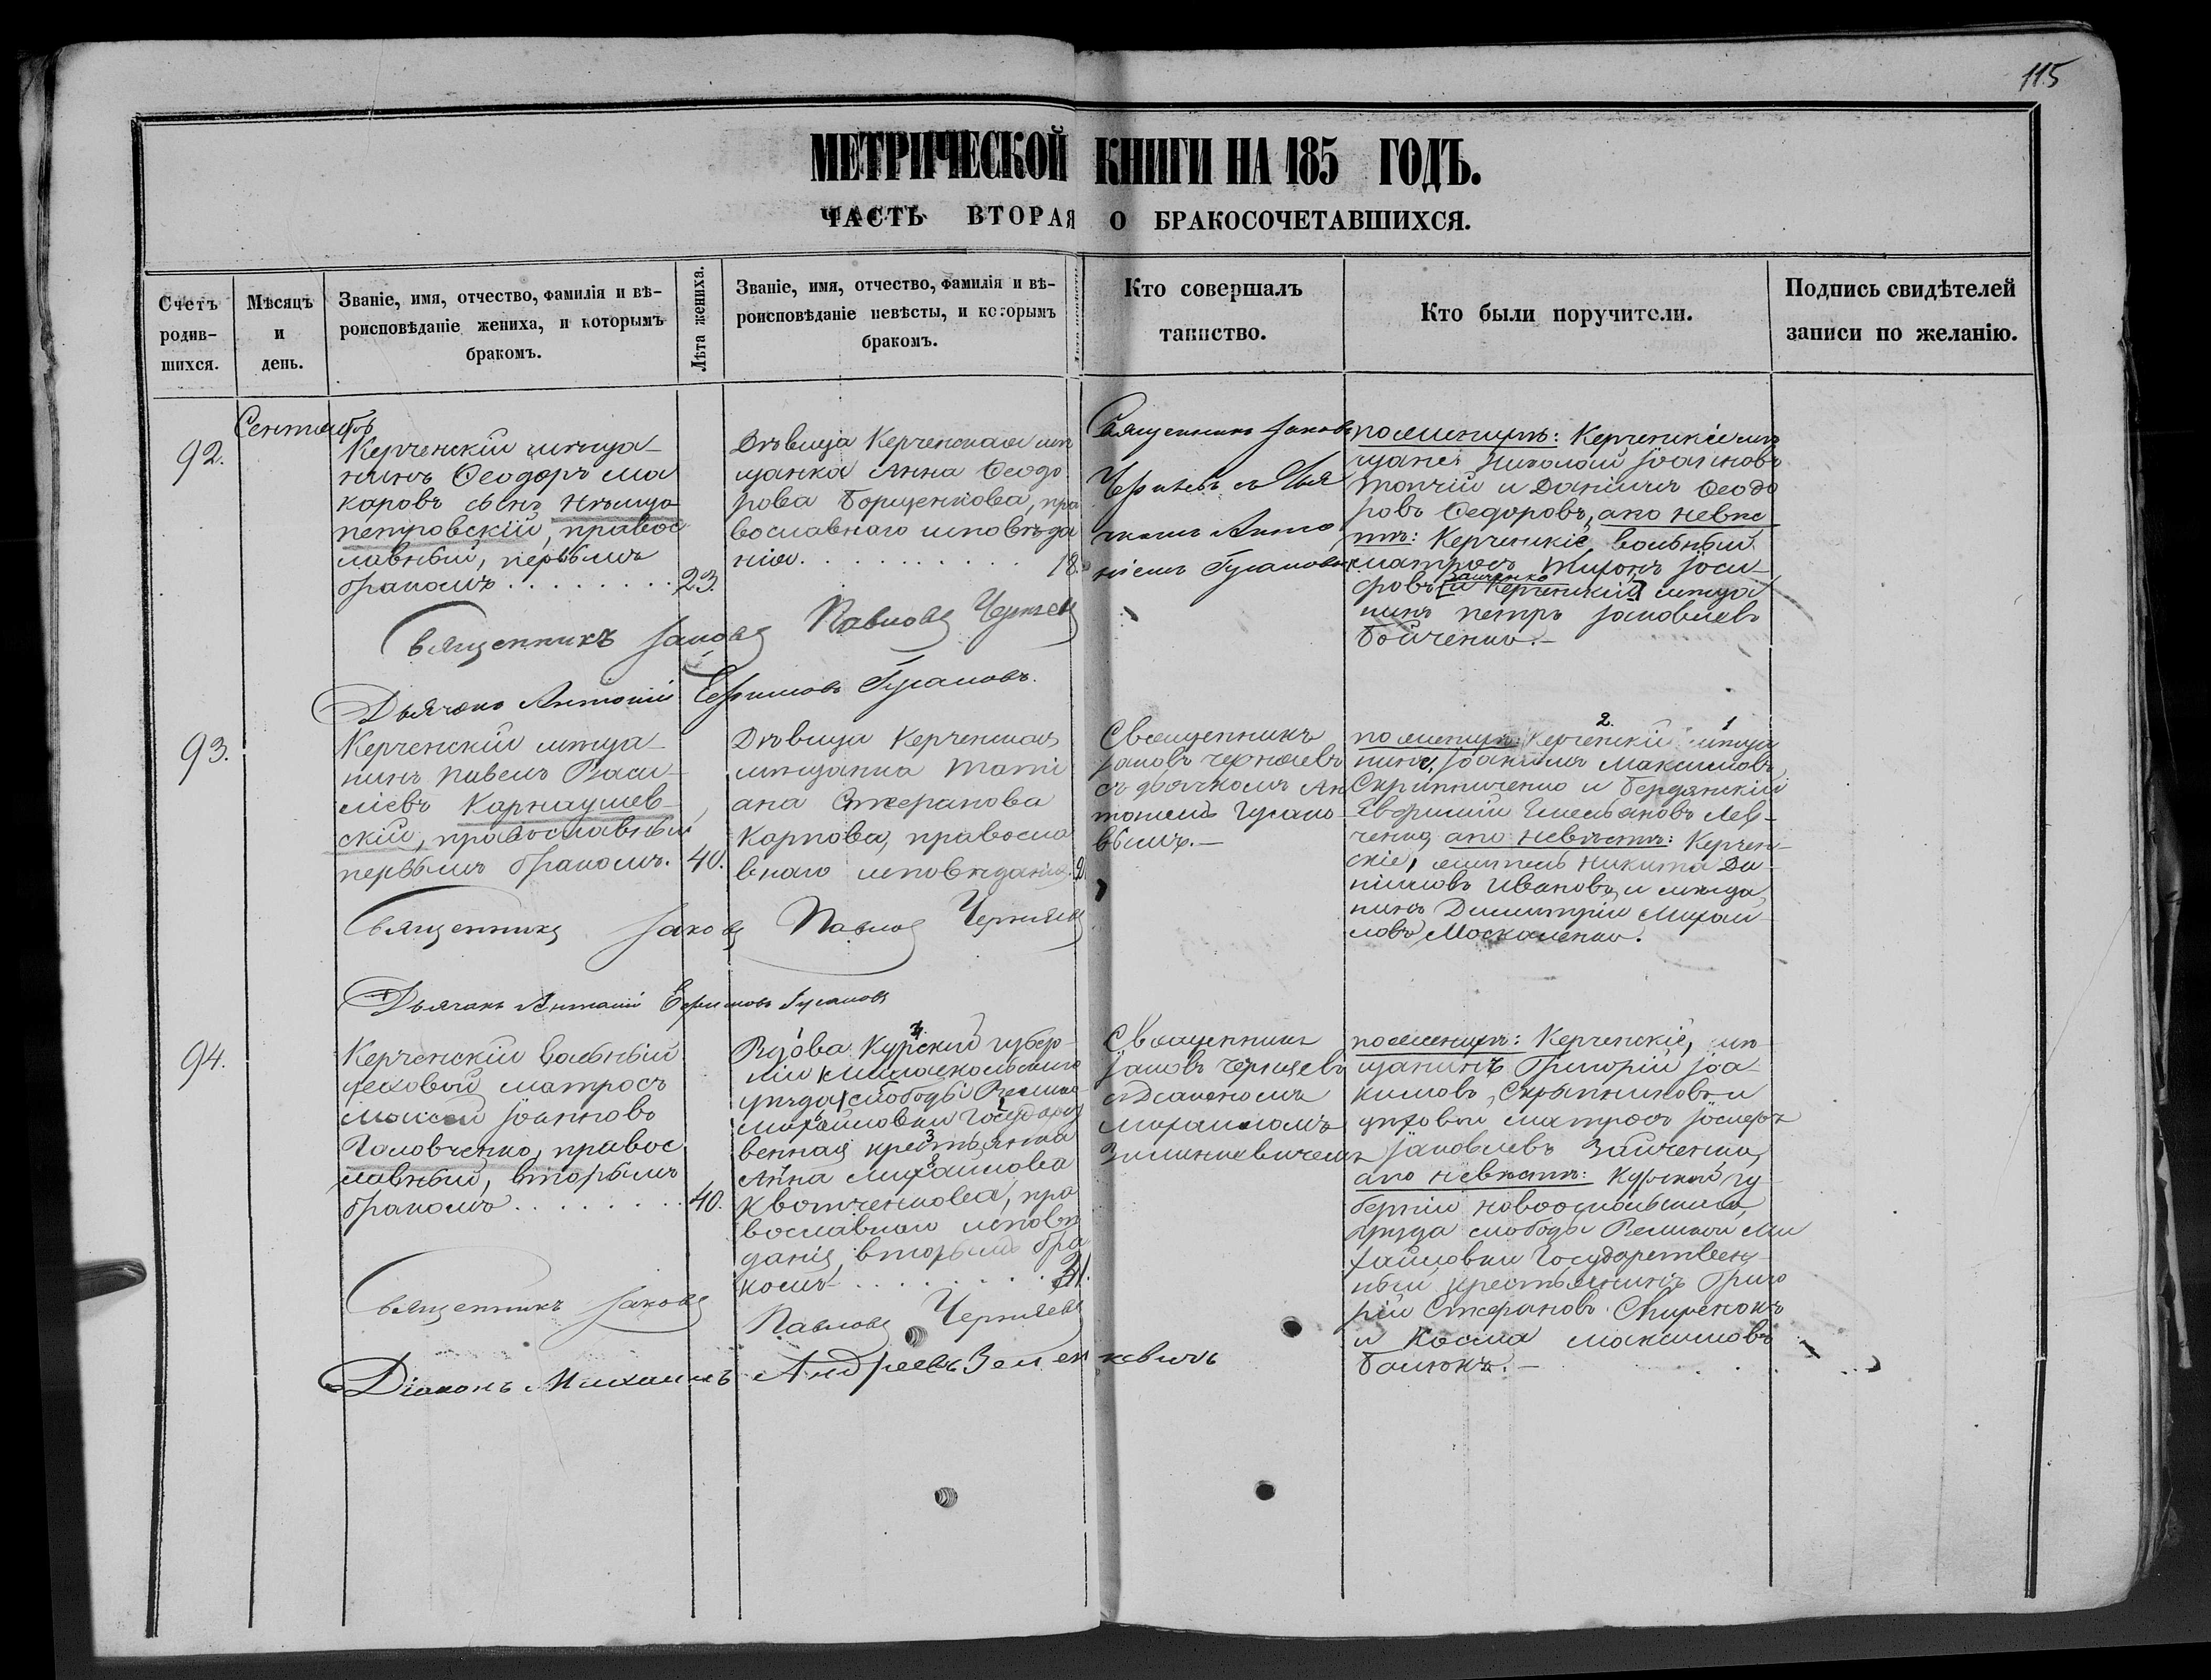 115
МЕТРИЧЕСКОЙ КНИГИ НА 185 ГОДЪ.
ЧАСТЬ ВТОРАЯ О БРАКОСОЧЕТАВШИХСЯ.
Счетъ
родив-
шихся.
Мѣсяцъ
и
день.
Званіе, имя, отчество, фамилія и вѣ-
роисповѣданіе жениха, и которымъ
бракомъ.
Лѣта жениха.
Званіе, имя, отчество, фамилія и вѣ-
роисповѣданіе невѣсты, и которымъ
бракомъ.
Кто совершалъ
таинство.
Кто были поручители.
Подпись свидѣтелей
записи по желанію.
Сентябрь
92.
Керченскій мѣща-
нинъ Ѳеодоръ Ма
каровъ сынъ Нѣмцо
петровскій, правос
лавный, первымъ
бракомъ . . . . . . . . 23.
Дѣвица Керченская мѣ
щанка Анна Ѳеодо
рова Борщенкова, пра
вославнаго исповѣда
нія . . . . . . . . . . . 18.
Священникъ Іаковъ
Черняевъ съ Дья
чкомъ Анто
ніемъ Гусаковы
по женихѣ: Керченскіе мѣ
щане Николай Іоанновъ
Топчій и Даніилъ Ѳеодо
ровъ Ѳедоровъ, а по невѣс
тѣ: Керченскіе, вольный
матросъ Тихонъ Іоси-
фовъ Заиченко [и Керченскій] мѣща
нинъ Петръ Іаковлевъ
Бойченко.-
Священникъ Іаковъ Павловъ Черняев
Дьячокъ Антоній Ефимовъ Гусаковъ.
93.
Керченскій мѣща-
нинъ Павелъ Васи-
ліевъ Карнаушев-
скій, православный
первымъ бракомъ. 40.
Дѣвица Керченская
мѣщанка Тати
ана Стефанова
Карпова, правосла
внаго исповѣданія.
Священникъ
Іаковъ Черняевъ
съ дьячкомъ Ан
тоніемъ Гусако-
вымъ.-
2. 1
по женихѣ: Керченскій мѣща
нинъ, Іоакимъ Максимовъ
Скрипниченко и Бердянскій
Евфимій Емельяновъ Лев-
ченко, а по невѣстѣ: Керчен-
скіе, житель Никита Да-
ніиловъ Ивановъ, и мѣща
нинъ Димитрій Михаи
ловъ Москаленко.
Священникъ Іаковъ Павловъ Черняевъ
Дьячокъ Антоній Ефимовъ Гусаковъ
94.
Керченскій вольный
цеховой матросъ
Моисей Іоанновъ
Головченко, правос
лавный, вторымъ
бракомъ . . . . . . . . 40.
Вдова Курской губер-
ніи
уѣзда слободы Велико
михайловки Государст
венная крестьянка
Анна Михайлова
Квотченкова, пра
вославнаго исповѣ
данія, вторымъ бра
комъ . . . . . . . . 31.
Священникъ
Іаковъ Черняевъ
съ Діакономъ
Михаиломъ
Зиминкевичемъ
по женихѣ: Керченскіе, мѣ-
щанинъ Григорій Іоа-
кимовъ, Скрынниковъ и
цеховой матросъ Іосифъ
Іаковлевъ Зайченко,
а по невѣстѣ: Курской гу-
берніи Новооскольскаго
уѣзда слободы Великой Ми
хайловки Государствен-
ный крестьянинъ Григо
рій Стефановъ
и Косма Максимовъ
Священникъ Іаковъ Павловъ Черняевъ
Діаконъ Михаилъ Андреевъ Зеленкевичъ